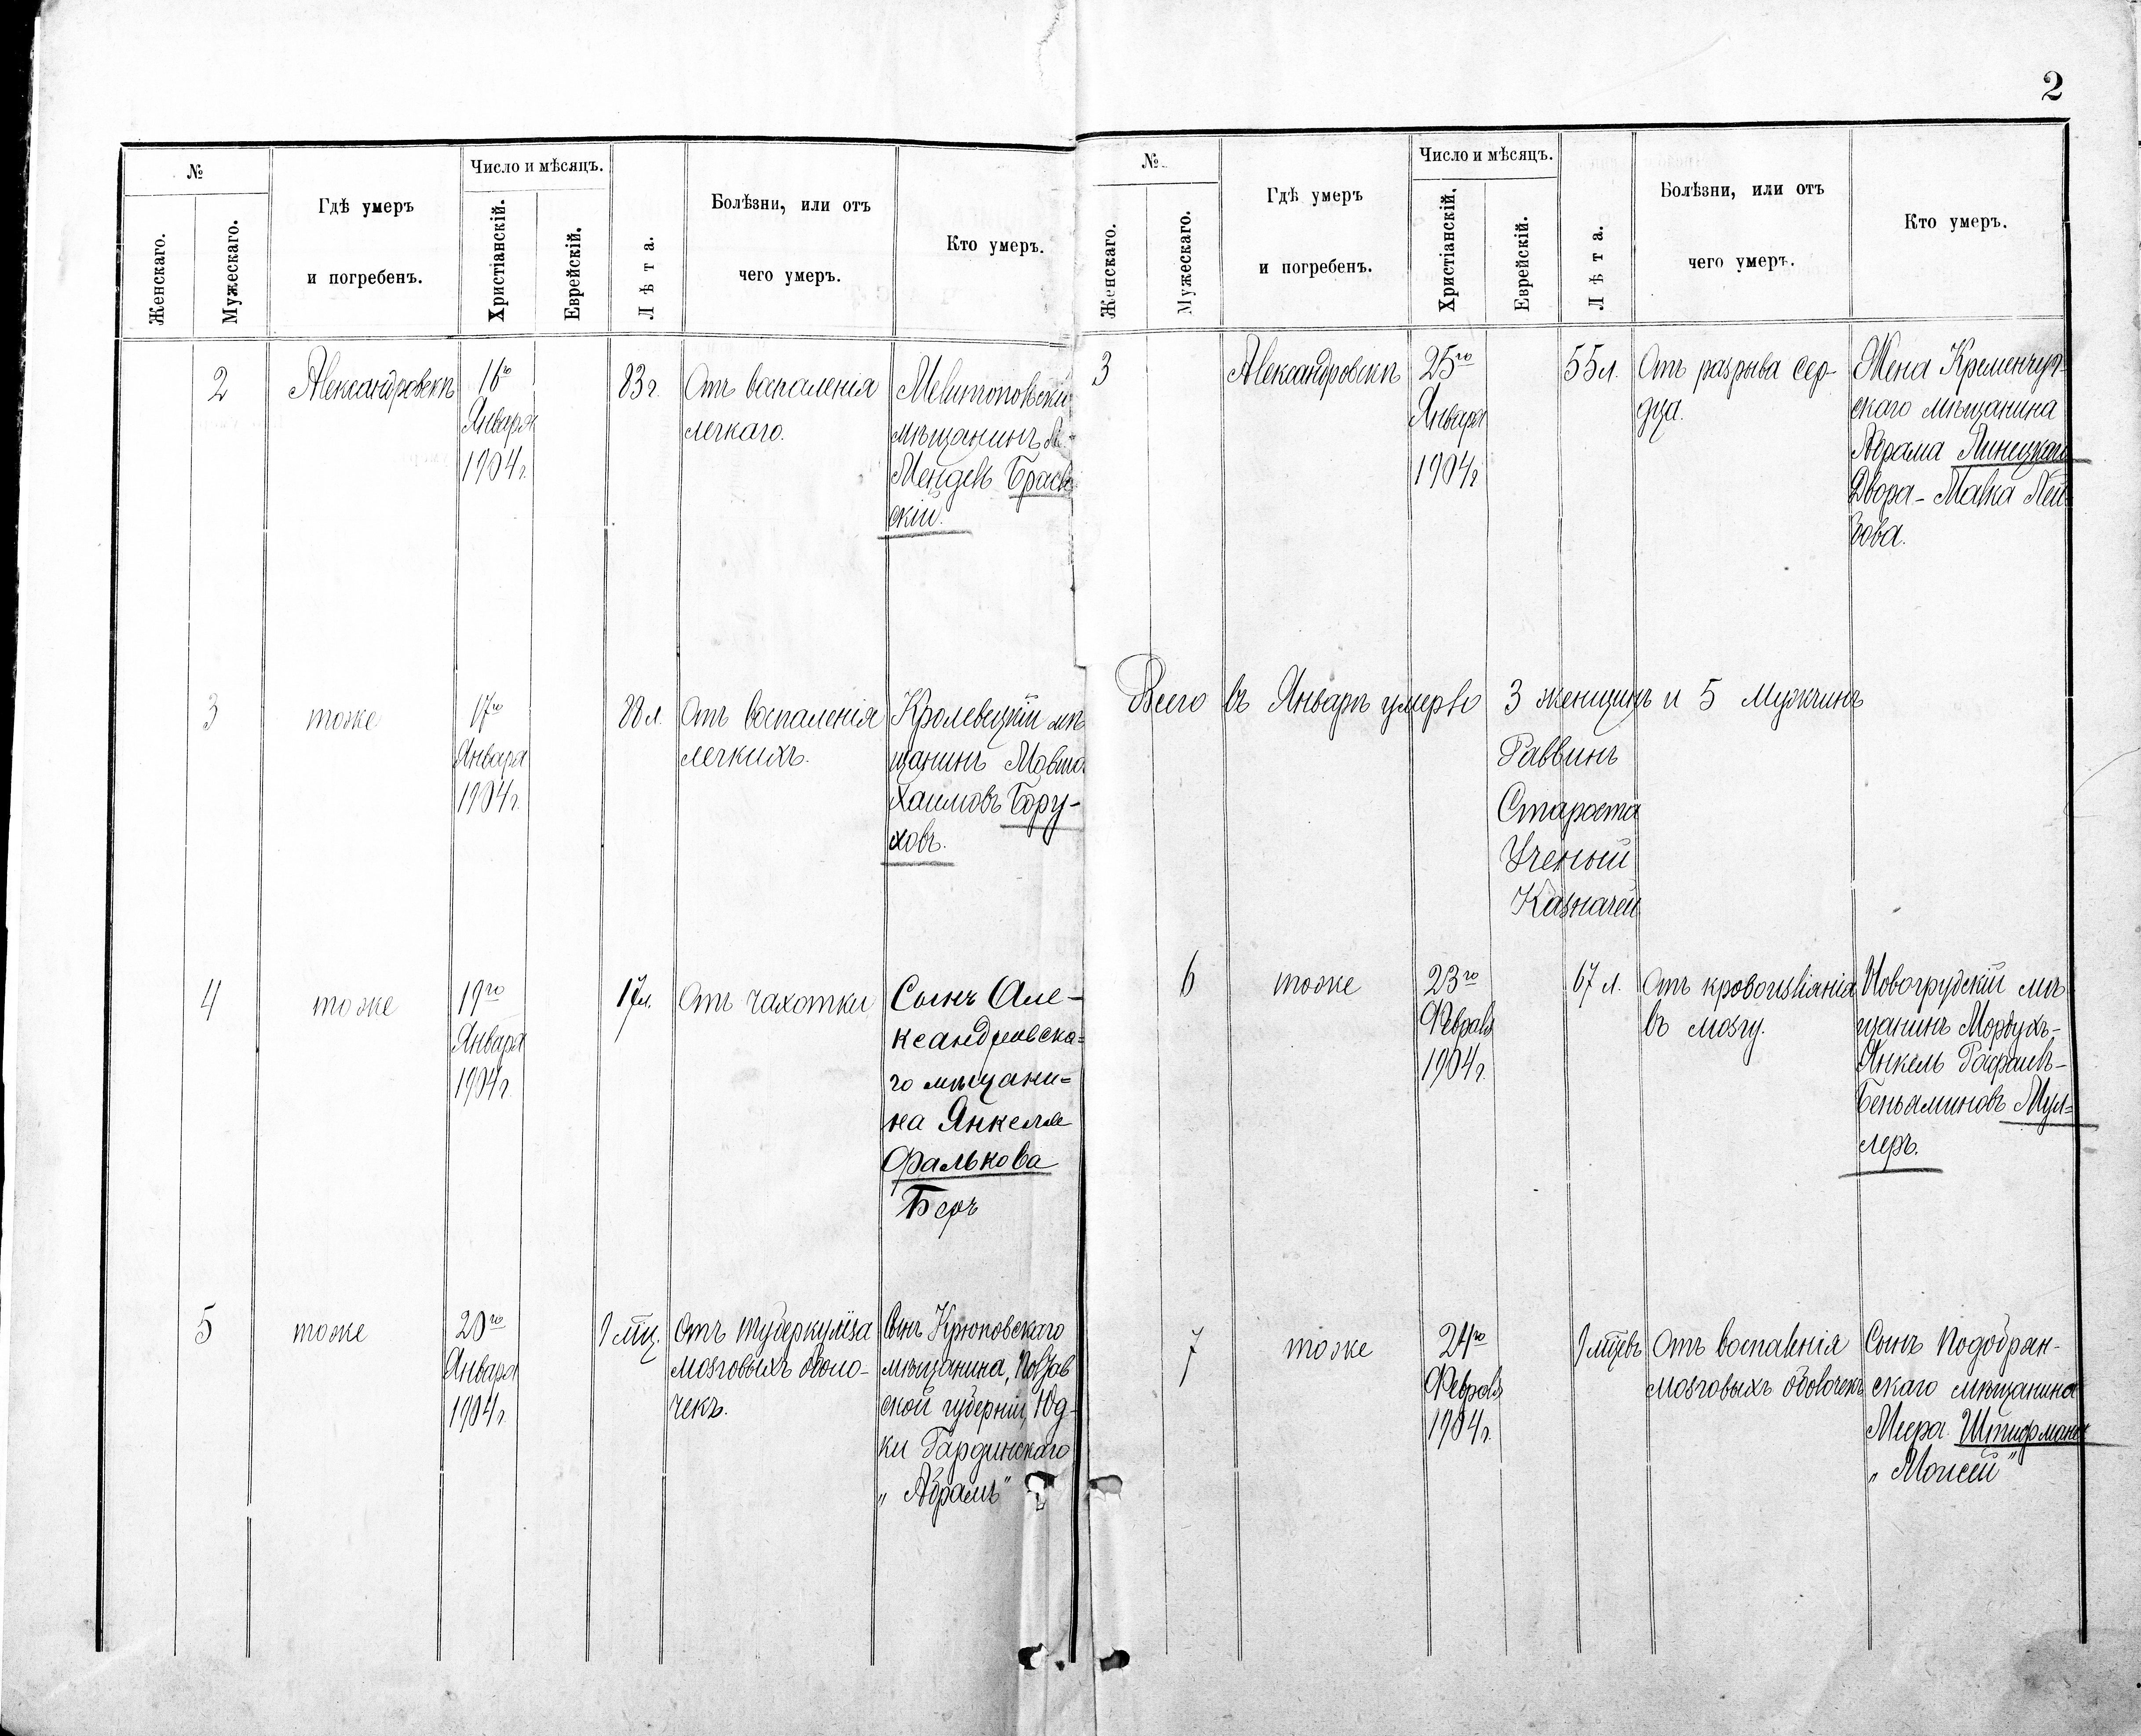 2
№
Женскаго.
Мужескаго.
Гдѣ умеръ
и погребенъ.
Число и мѣсяцъ.
Христіанскій.
Еврейскій.
Лѣта.
Болѣзни, или отъ
чего умеръ.
Кто умеръ.
2
Александровскъ
16го
Января
1904г.
83г.
Отъ воспаленія
легкаго.
Мелитопольскій
мѣщанинъ
Мендель Браев
скій.
3
тоже
17го
Января
1904г.
88л.
Отъ воспаленія
легкихъ.
Кролевецкій мѣ
щанинъ Мовша
Хаимовъ Бору-
ховъ.
4
тоже
19го
Января
1904г.
17л.
Отъ чахотки
Сынъ Але-
ксандровска-
го мѣщани-
на Янкеля
Фалькова
Беръ
5
тоже
20го
Января
1904г.
9 мѣц.
Отъ туберкулёза
мозговыхъ оболо-
чекъ.
Сынъ Крюковскаго
мѣщанина, Полтав
ской губерніи, Юд-
ки Гардинскаго
„Абрамъ"
№
Женскаго.
Мужескаго.
Гдѣ умеръ
и погребенъ.
Число и мѣсяцъ.
Христіанскій.
Еврейскій.
Лѣта.
Болѣзни, или отъ
чего умеръ.
Кто умеръ.
3
Александровскъ
25го
Января
1904г
55л.
Отъ разрыва сер-
дца.
Жена Кременчуг-
скаго мѣщанина
Абрама Линецкаго
Двора-Малка Лей
бова.
Всего въ Январѣ умерло 3 женщинъ и 5 мужчинъ
Раввинъ
Староста
Ученый
Казначей
6
тоже
23го
Февраля
1904г.
67 л.
Отъ кровоизліянія
въ мозгу.
Новогрудскій мѣ
щанинъ Мордухъ-
Янкель Рафаилъ-
Беньяминовъ Мул-
леръ.
7
тоже
24го
Февраля
1904г.
9 мѣцевъ
Отъ воспаленія
мозговыхъ оболочекъ
Сынъ Подобрян-
скаго мѣщанина
Меера Штифмана
„Моисей"